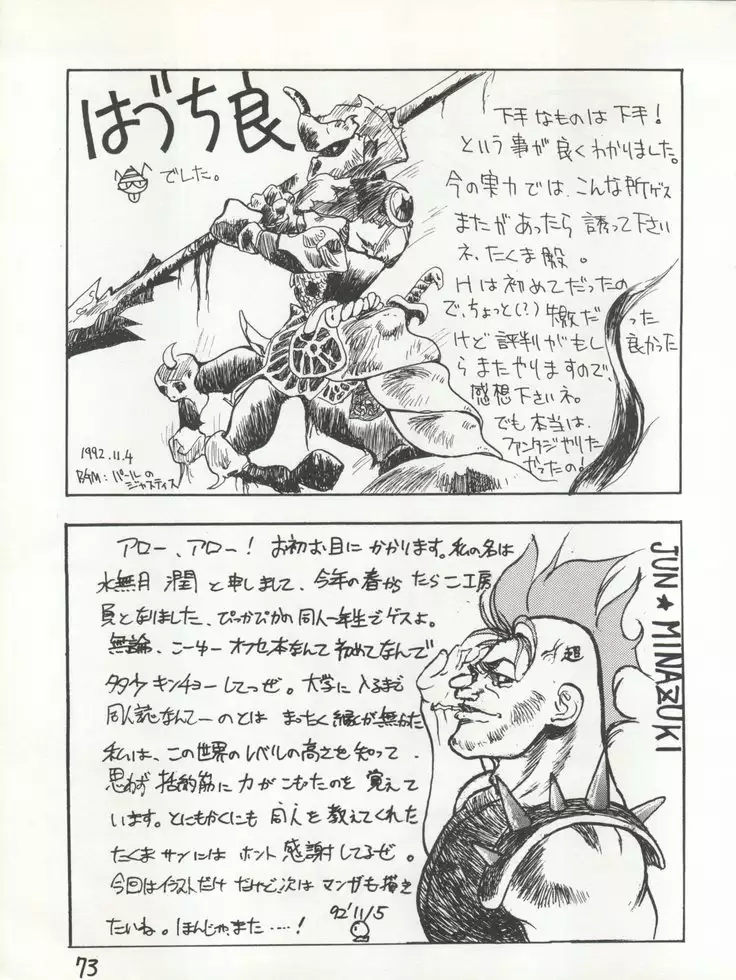 はづち良
でした。
下手なものは下手!
という事が良くわかりました。
今の実力では、こんな所ゲス
またがあったら誘って下さい
ネ、たくま殿。
Hは初めてだったの
で、ちょっと(?)だった
けど評判がもし良かった
らまたやりますので、
感想下さいネ。
でも本当は、
ファンタジやりた
かったの!
1992.11.4
BGM:パールの
ジャスティス
アロー、アロー! お初お目にかかります。私の名は
水無月 潤 と申しまして、今年の春からたらこ工房
員となりました、ぴっかぴかの同人一年生でゲスよ。
無論、こーゆーオフセ本なんて初めてなんで
タタタタ キンチョーしてっぜ。大学に入るまで
同人誌なんてーのとは まったく縁が無かった
私は、この世界のレベルの高さを知って、
思わず 括約筋に力がこもったのを覚えて
います。とにもかくにも 同人を教えてくれた
たくまサンには ホント 感謝してるぜ。
今回はイラストだけ だけど次は マンガも描き
たいね。ほんじゃ、また……!
92'11/5
超
JUN★MINAZUKI
73